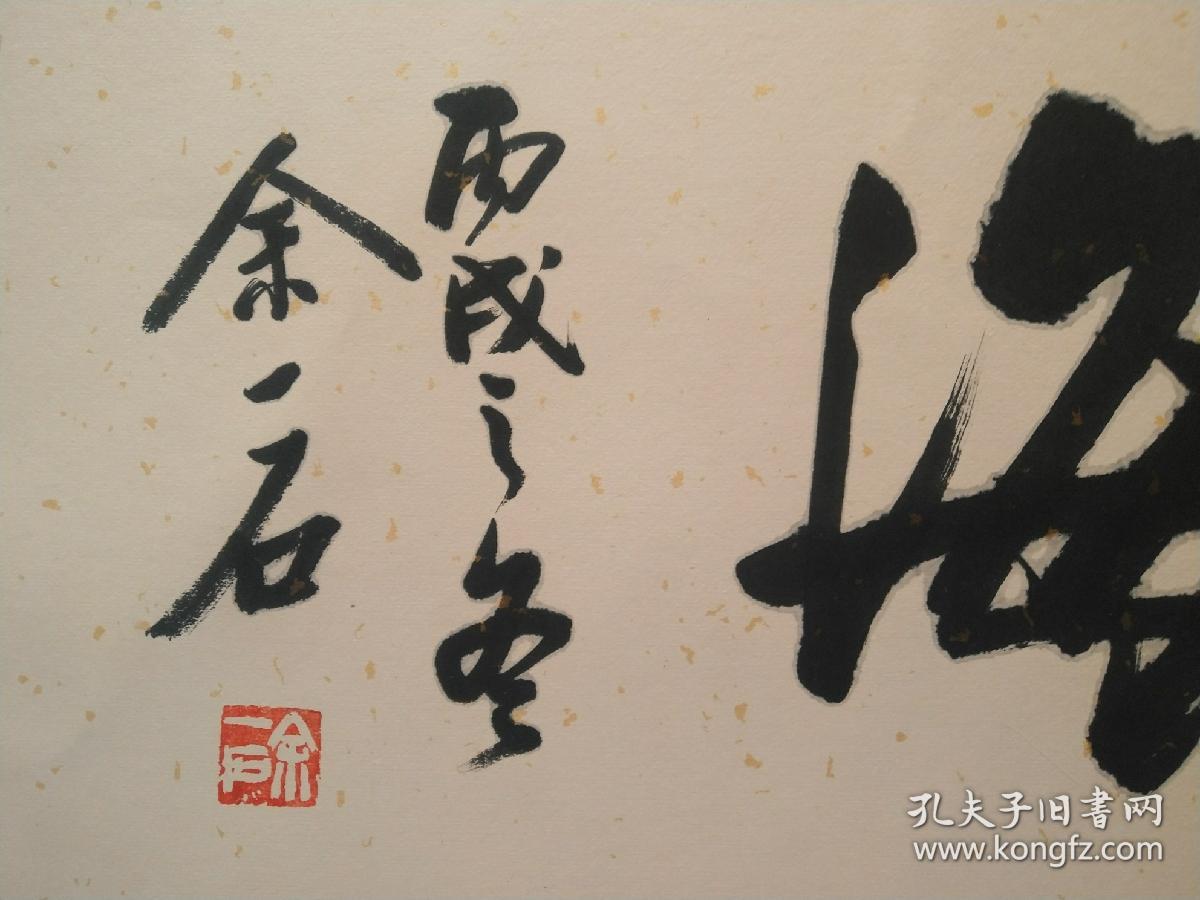 海
丙戌之冬
余一石
余一石
孔夫子旧书网
www.kongfz.com